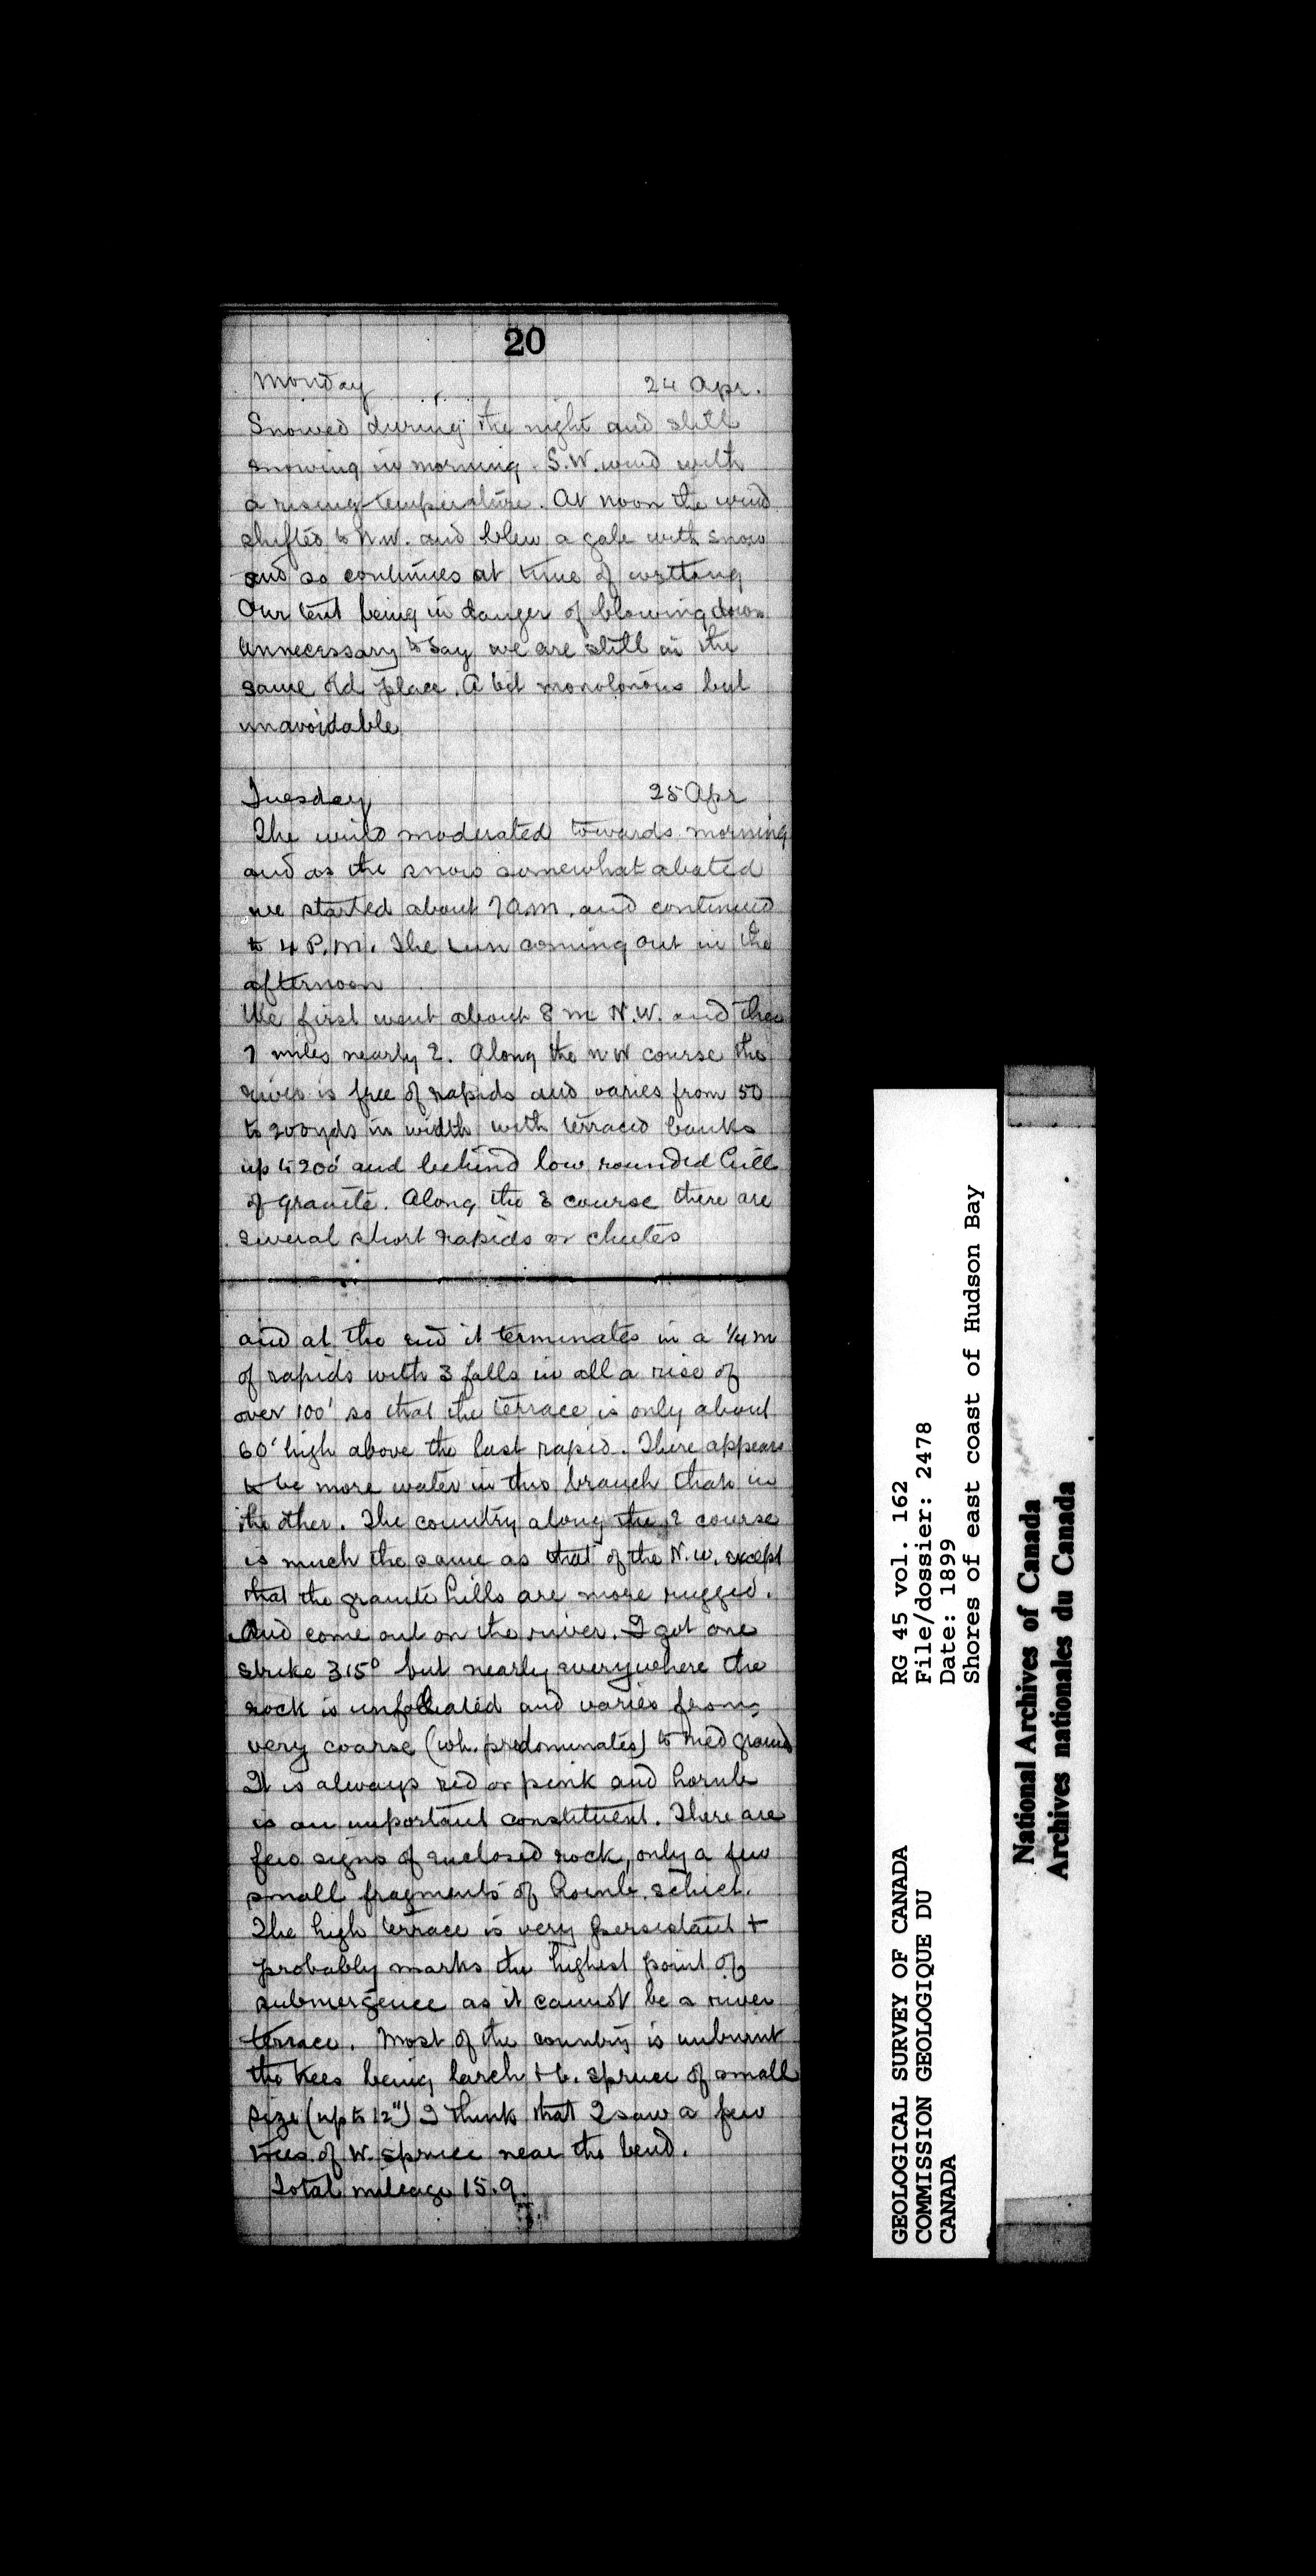 20
Monday 24 Apr.
Snowed during the night and still
snowing in morning. S.W. wind with
a rising temperature. At noon the wind
shifted to N.W. and blew a gale with snow
and so continues at time of writting
Our tent being in danger of blowing down
Unnecessary to say we are still in the
same old place. A bit monotonous but
unavoidable
Tuesday 25 Apr
The wind moderated towards morning
and as the snow somewhat abated
we started about 7 A.M. and continued
to 4 P.M. The sun coming out in the
afternoon
We first went about 8 m N.W. and then
7 miles nearly E. Along the N W course the
river is free of rapids and varies from 50
to 200 yds in width with terraced banks
up to 200' and behind low rounded hill
of granite. Along the E course there are
several short rapids or chutes
and at the end it terminates in a ¼ m
of rapids with 3 falls in all a rise of
over 100' so that the terrace is only about
60' high above the last rapid. There appears
to be more water in this branch than in
the other. The country along the E course
is much the same as that of the N.W. except
that the granite hills are more rugged.
And come out on the river. I got one
strike 315° but nearly everywhere the
rock is unfoliated and varies from
very coarse (wh. predominates) to med grained
It is always red or pink and hornb
is an important constituent. There are
few signs of enclosed rock, only a few
small fragments of hornb. schist.
The high terrace is very persistant +
probably marks the highest point of
submergence as it cannot be a river
terrace. Most of the country is unburnt
the trees being larch + b. spruce of small
size (up to 12") I think that I saw a few
trees of W. spruce near the bend.
Total mileage 15.9
GEOLOGICAL SURVEY OF CANADA
COMMISSION GEOLOGIQUE DU
CANADA
RG 45 vol. 162
File/dossier: 2478
Date: 1899
Shores of east coast of Hudson Bay
National Archives of Canada
Archives nationales du Canada